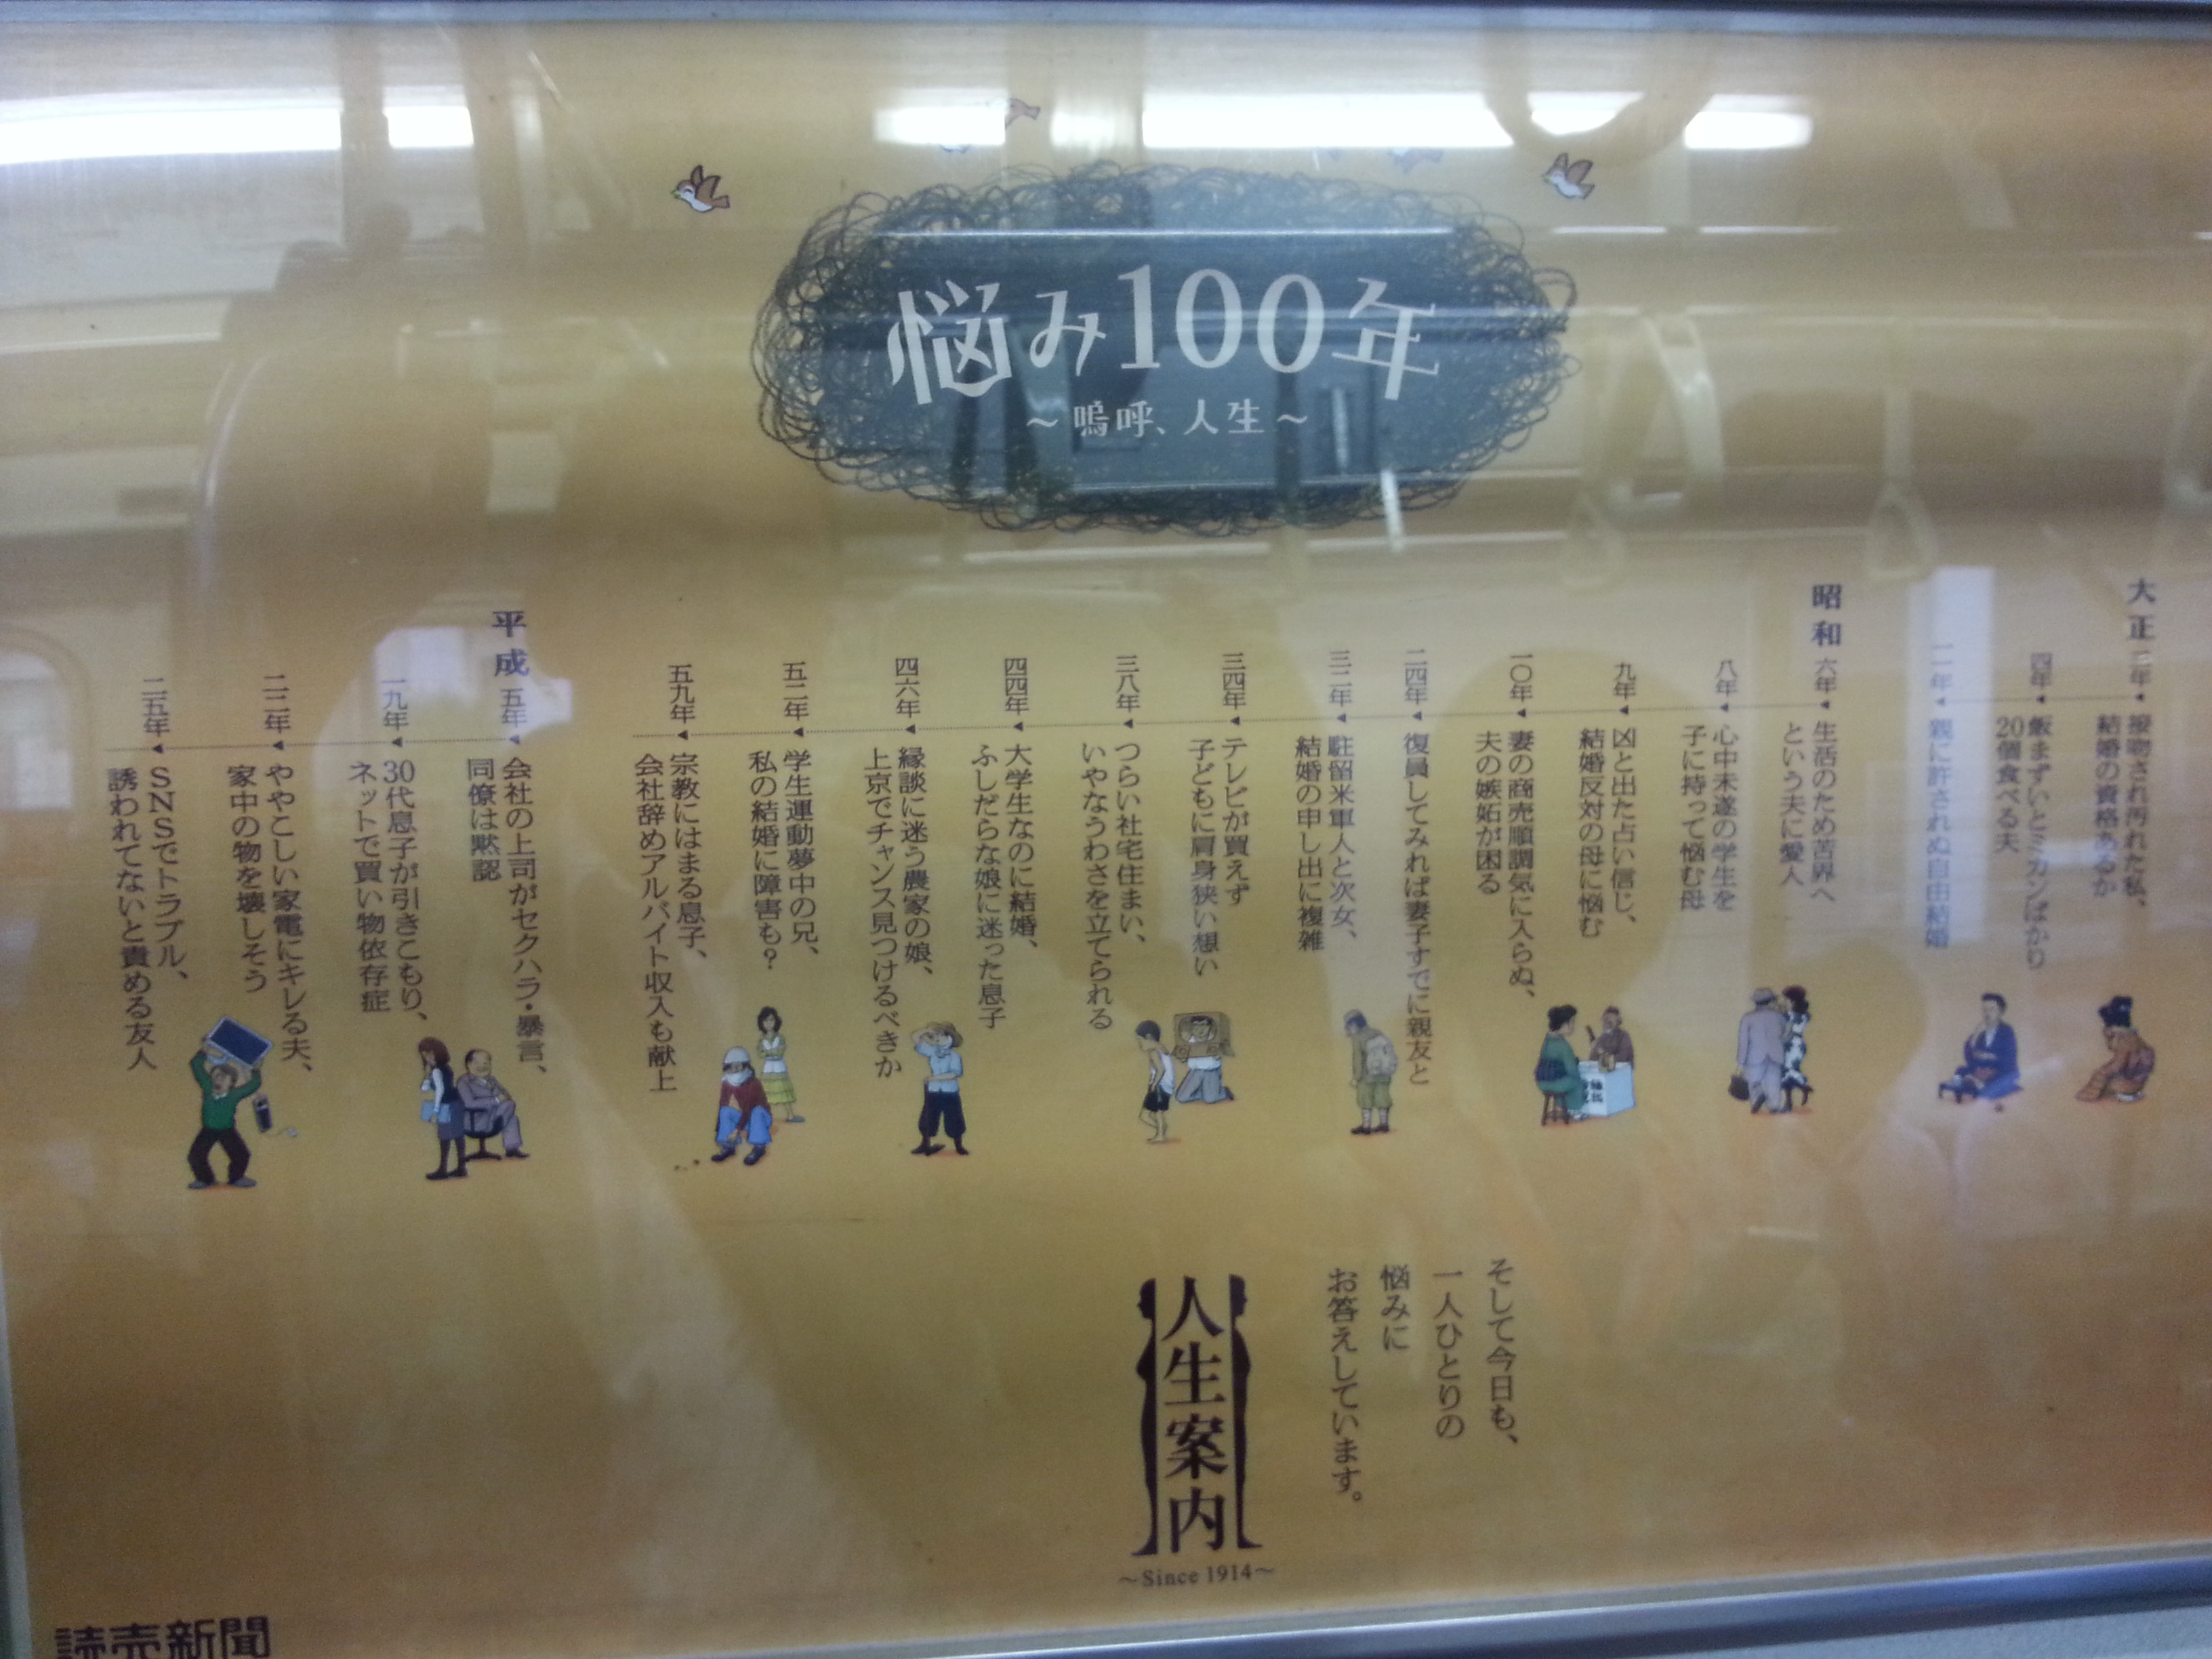 悩み100年
～嗚呼、人生～
大正 三年
接吻され汚れた私、
結婚の資格あるか
四年
飯まずいとミカンばかり
20個食べる夫
一一年
親に許されぬ自由結婚
昭和 六年
生活のため苦界へ
という夫に愛人
八年
心中未遂の学生を
子に持って悩む母
九年
凶と出た占い信じ、
結婚反対の母に悩む
一〇年
妻の商売順調気に入らぬ、
夫の嫉妬が困る
二四年
復員してみれば妻子すでに親友と
三二年
駐留米軍人と次女、
結婚の申し出に複雑
三四年
テレビが買えず
子どもに肩身狭い想い
三八年
つらい社宅住まい、
いやなうわさを立てられる
四四年
大学生なのに結婚、
ふしだらな娘に迷った息子
四六年
縁談に迷う農家の娘、
上京でチャンス見つけるべきか
五二年
学生運動夢中の兄、
私の結婚に障害も？
五九年
宗教にはまる息子、
会社辞めアルバイト収入も献上
平成 五年
会社の上司がセクハラ・暴言、
同僚は黙認
一九年
30代息子が引きこもり、
ネットで買い物依存症
二二年
ややこしい家電にキレる夫、
家中の物を壊しそう
二五年
SNSでトラブル、
誘われてないと責める友人
そして今日も、
一人ひとりの
悩みに
お答えしています。
人生案内
～Since 1914～
読売新聞